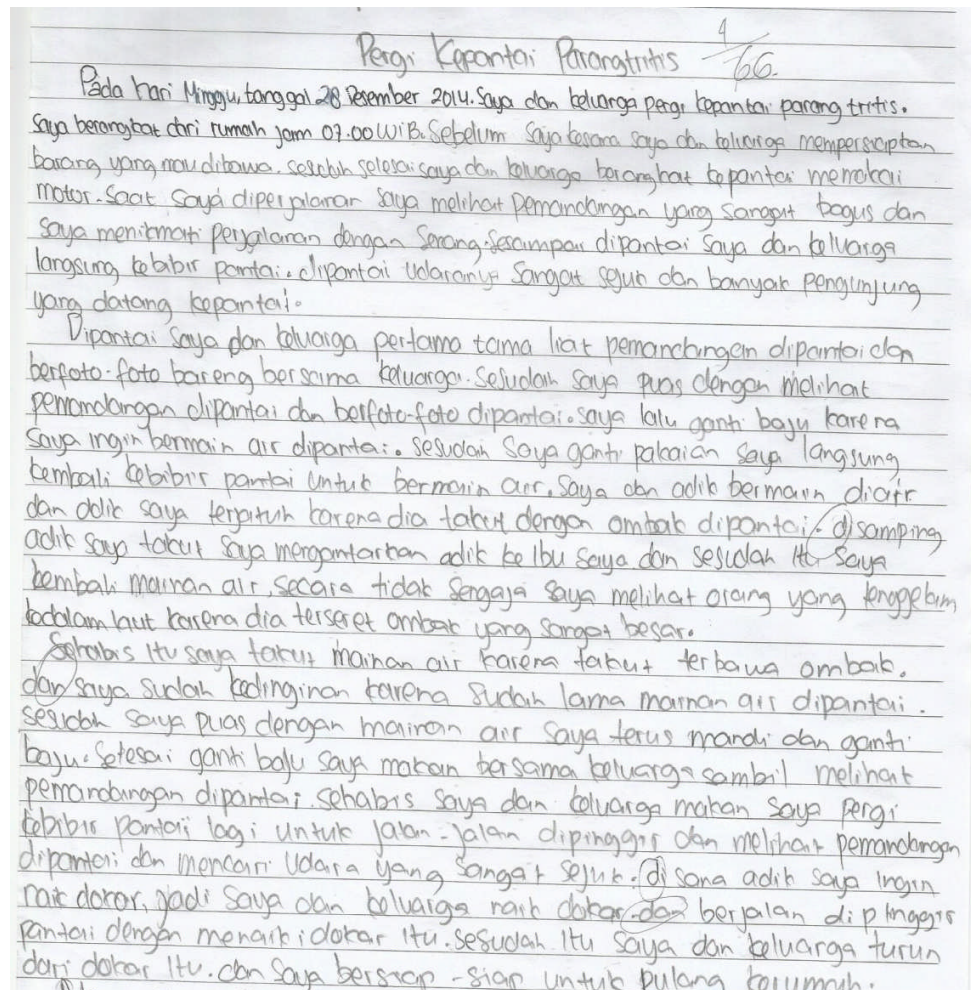 Pergi Kepantai Parangtritis
4
66
Pada hari Minggu, tanggal 28 Desember 2014. Saya dan keluarga pergi kepantai parang tritis.
Saya berangkat dari rumah jam 07.00 WIB. Sebelum saya kesana saya dan keluarga mempersiapkan
barang yang mau dibawa. sesudah selesai saya dan keluarga berangkat kepantai memakai
motor. Saat saya diperjalanan saya melihat pemandangan yang sangat bagus dan
saya menikmati perjalanan dengan senang. Sesampai dipantai saya dan keluarga
langsung kebibir pantai. dipantai udaranya sangat sejuk dan banyak pengunjung
yang datang kepantai.
Dipantai saya dan keluarga pertama tama liat pemandangan dipantai dan
berfoto-foto bareng bersama keluarga. Sesudah saya puas dengan melihat
pemandangan dipantai dan berfoto-foto dipantai. saya lalu ganti baju karena
saya ingin bermain air dipantai. sesudah saya ganti pakaian saya langsung
kembali kebibir pantai untuk bermain air. Saya dan adik bermain diair
dan adik saya karena dia takut dengan ombak dipantai. disamping
adik saya takut saya mengantarkan adik ke Ibu saya dan sesudah itu saya
kembali mainan air. secara tidak sengaja saya melihat orang yang tenggelam
kedalam laut karena dia terseret ombak yang sangat besar.
Sehabis itu saya takut mainan air karena takut terbawa ombak.
dan saya sudah kedinginan karena sudah lama mainan air dipantai.
sesudah saya puas dengan mainan air saya terus mandi dan ganti
baju. Selesai ganti baju saya makan bersama keluarga sambil melihat
pemandangan dipantai. sehabis saya dan keluarga makan saya pergi
kebibir pantai lagi untuk jalan-jalan dipinggir dan melihat pemandangan
dipantai dan mencari udara yang sangat sejuk. disana adik saya ingin
naik dokar, jadi saya dan keluarga naik dokar dan berjalan dipinggir
pantai dengan menaiki dokar itu. sesudah itu saya dan keluarga turun
dari dokar itu. dan saya bersiap-siap untuk pulang kerumah.